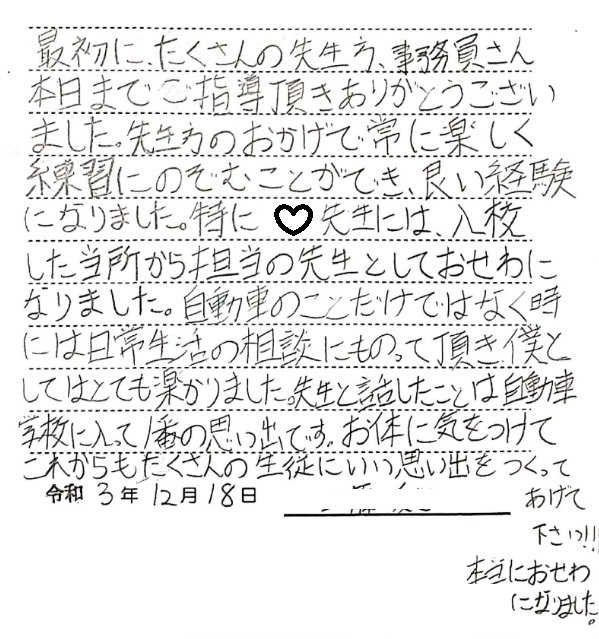 最初に、たくさんの先生方、事務員さん
本日までご指導頂きありがとうござい
ました。先生方のおかげで常に楽しく
練習にのぞむことができ、良い経験
になりました。特に ♡ 先生には、入校
した当所から担当の先生としておせわに
なりました。自動車のことだけではなく時
には日常生活の相談にものって頂き僕と
してはとても楽かりました。先生と話したことは自動車
学校に入って1番の思い出です。お体に気をつけて
これからもたくさんの生徒にいい思い出をつくって
令和 3年 12月 18日
あげて
下さいっ!!
本当におせわ
になりました。